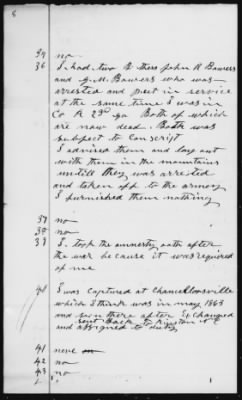 6
34 no
36 I had two Brothers John R Bowers
and G.M. Bowers who was
arrested and put in service
at the same time I was in
Co K 23d Both of which
are now dead. Both was
subject to Conscript
I advised them and lay out
with them in the mountains
untill they was arrested
and taken off to the armory
I furnished them nothing
37 no
38 no
38 I took the amnesty oath after
the war because it was required
of me
40 I was captured at Chancellorsville
which I think was in may 1863
and sent there after Exchanged
sent Back to Kingston N C
and assigned to duty
41 none
42 no
43 no